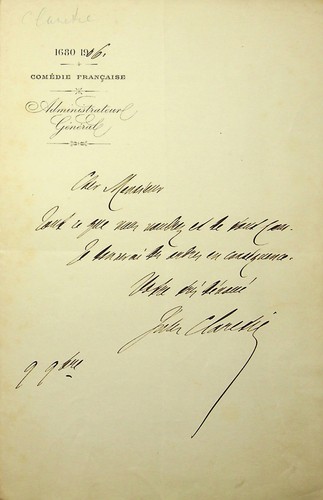 Claretie
1680 1906.
COMÉDIE FRANÇAISE
Administrateur
Général
Cher Monsieur
Tout ce que vous voudrez et de tout cœur.
Je donnerai des ordres en conséquence.
Votre très dévoué
Jules Claretie
9 9bre